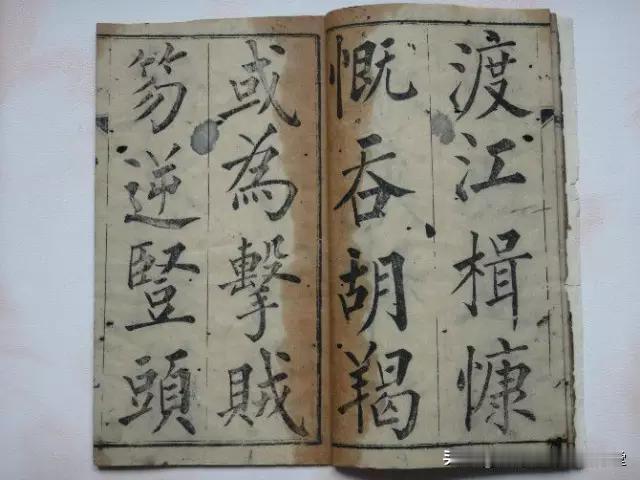 渡江楫慷
慨吞胡羯
或為擊賊
笏逆豎頭